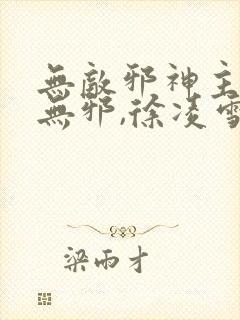 無敵邪神主
無邪,徐凌雪
梁雨才